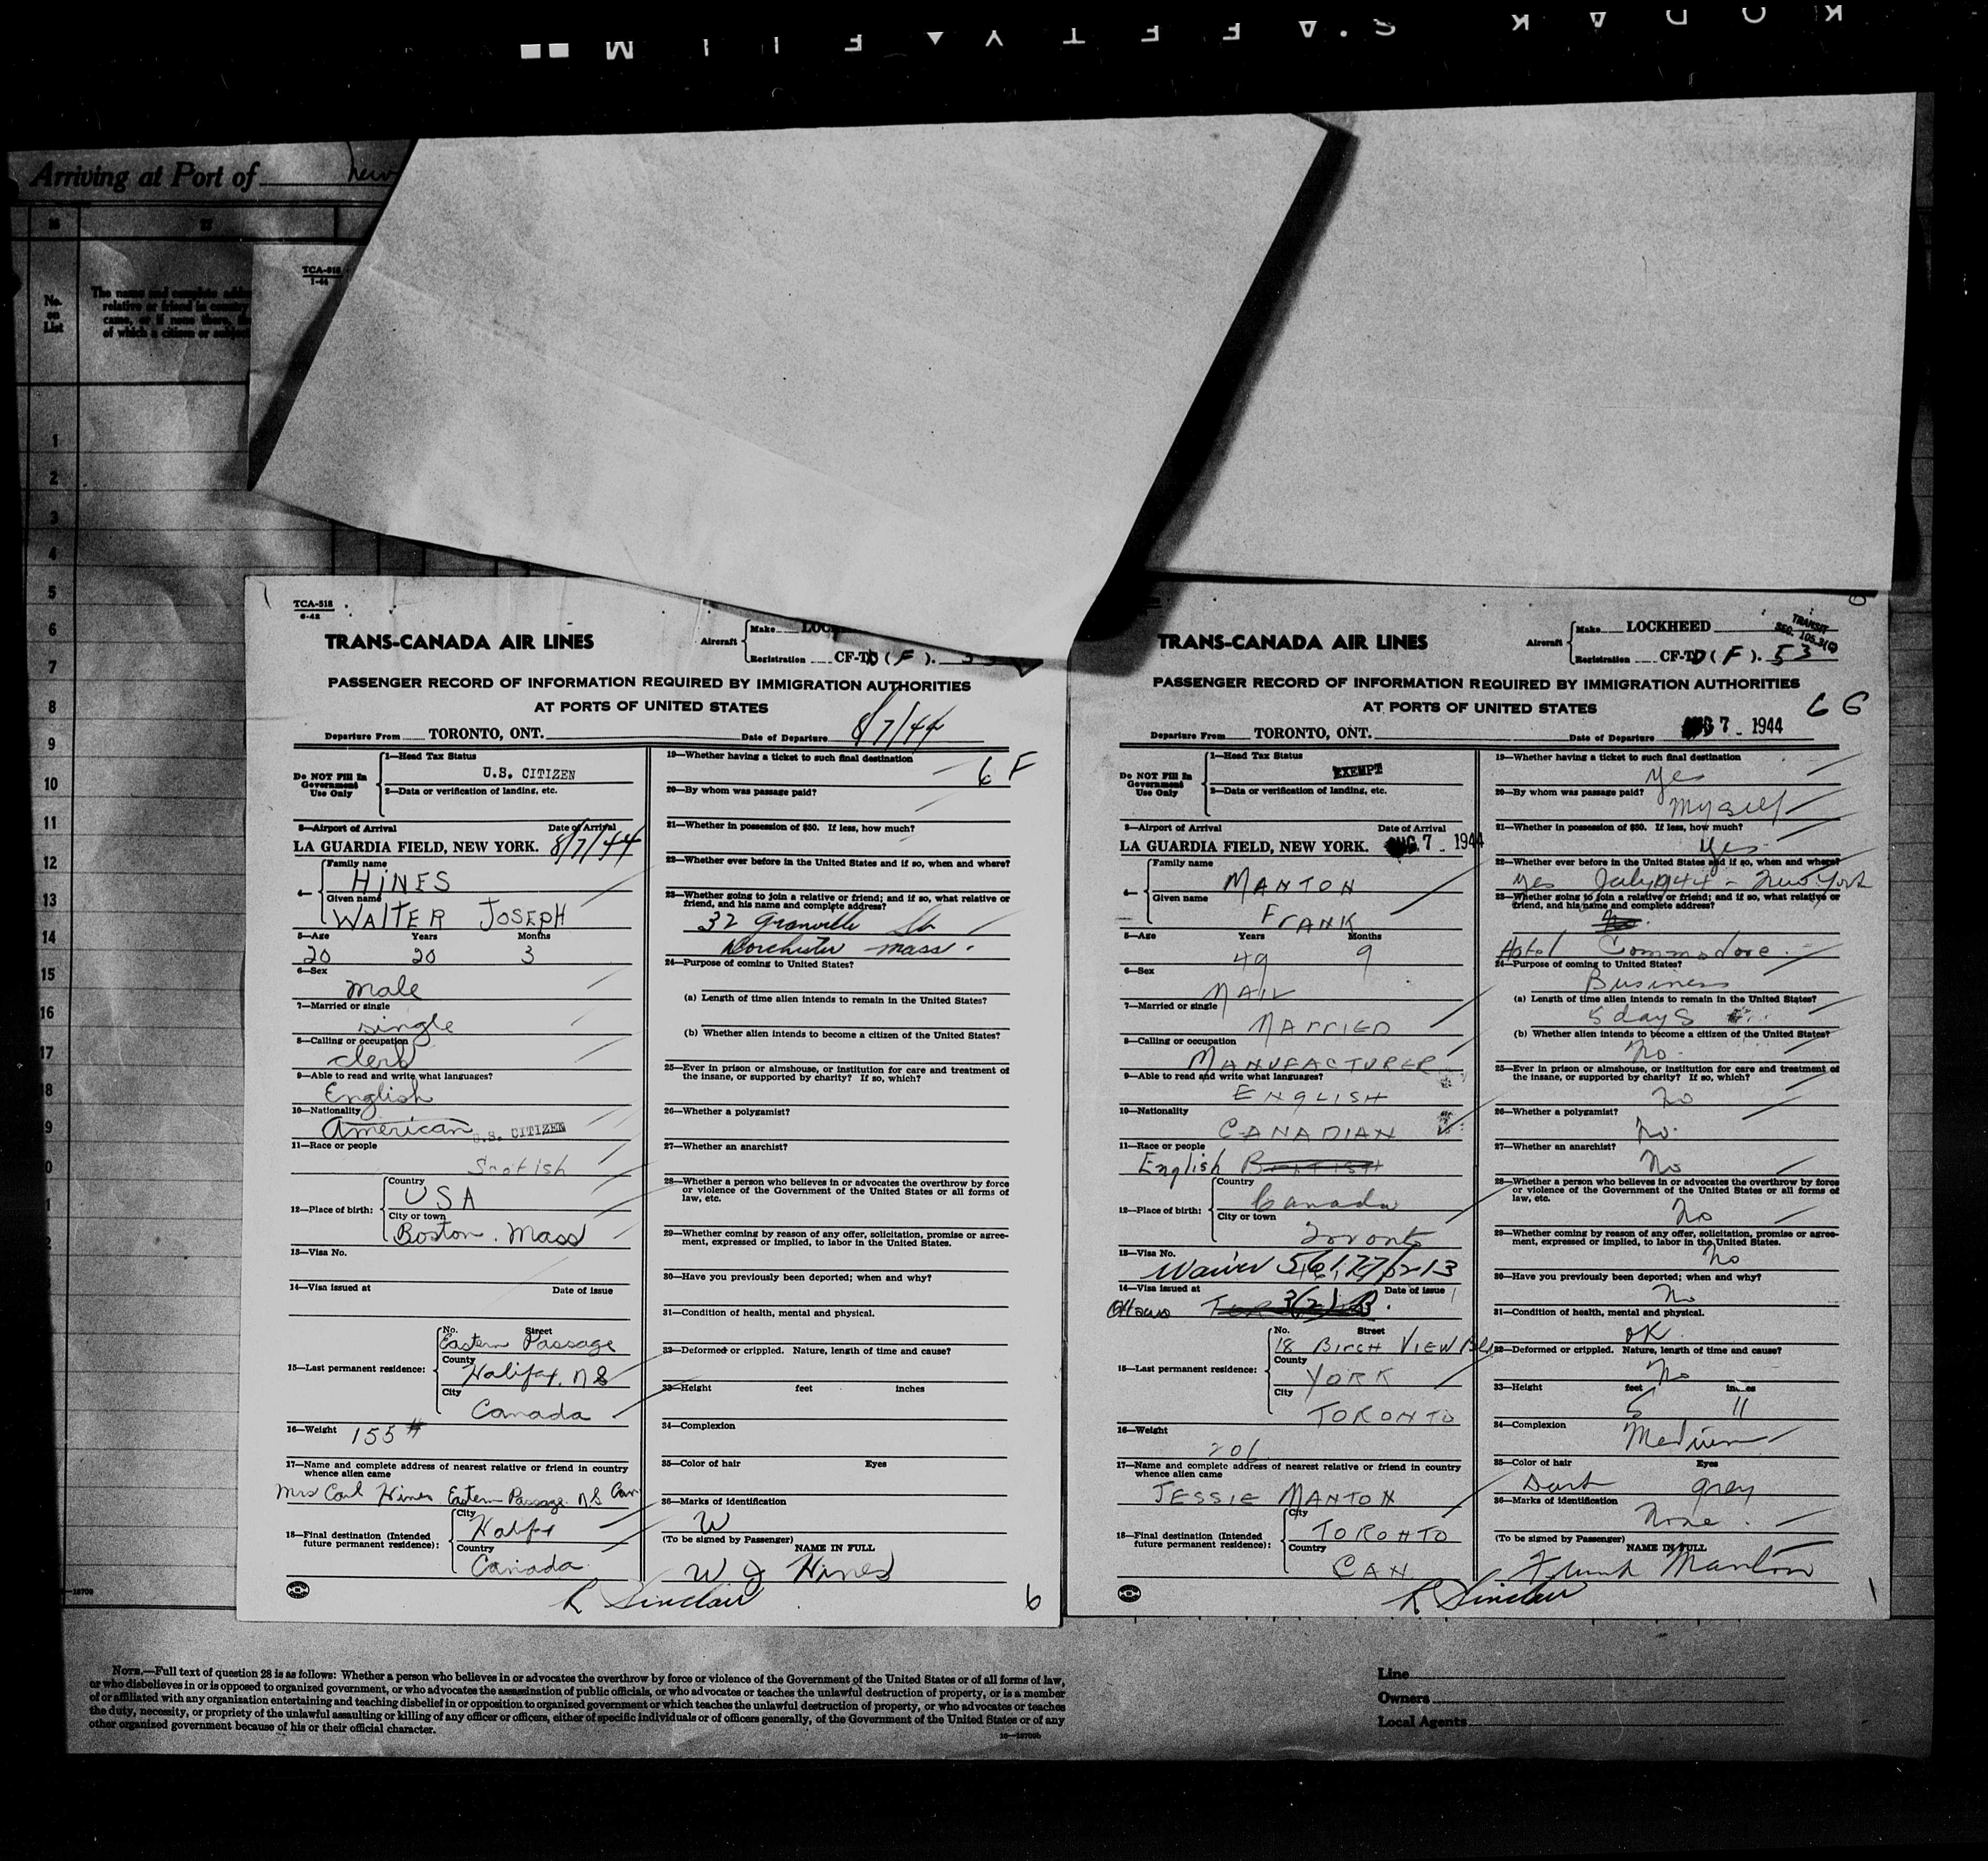 KODAK SAFETY FILM
Arriving at Port of New
No. on List
TCA-518
1-44
1
2
3
4
5
6
7
8
9
10
11
12
13
14
15
16
17
18
TCA-518
6-42
TRANS-CANADA AIR LINES
Aircraft
Make
Registration CF-TD (F).
PASSENGER RECORD OF INFORMATION REQUIRED BY IMMIGRATION AUTHORITIES
AT PORTS OF UNITED STATES
Departure From TORONTO, ONT. Date of Departure 8/7/44
Do NOT Fill In Government Use Only
1—Head Tax Status
U.S. CITIZEN
2—Data or verification of landing, etc.
3—Airport of Arrival Date of Arrival
LA GUARDIA FIELD, NEW YORK. 8/7/44
4—
Family name
HINES
Given name
WALTER JOSEPH
5—Age Years Months
20 20 3
6—Sex
male
7—Married or single
single
8—Calling or occupation
clerk
9—Able to read and write what languages?
English
10—Nationality
American U.S. CITIZEN
11—Race or people
Scotish
12—Place of birth:
Country
USA
City or town
Boston. Mass
13—Visa No.
14—Visa issued at Date of issue
15—Last permanent residence:
No. Street
Eastern Passage
County
Halifax. NS
City
Canada
16—Weight 155 #
17—Name and complete address of nearest relative or friend in country
whence alien came
Mrs Carl Hines Eastern Passage. NS Can
18—Final destination (Intended
future permanent residence):
City
Halifx
Country
Canada.
19—Whether having a ticket to such final destination
6 F
20—By whom was passage paid?
21—Whether in possession of $50. If less, how much?
22—Whether ever before in the United States and if so, when and where?
23—Whether going to join a relative or friend; and if so, what relative or
friend, and his name and complete address?
32 Granville St
Dorchester mass.
24—Purpose of coming to United States?
(a) Length of time alien intends to remain in the United States?
(b) Whether alien intends to become a citizen of the United States?
25—Ever in prison or almshouse, or institution for care and treatment of
the insane, or supported by charity? If so, which?
26—Whether a polygamist?
27—Whether an anarchist?
28—Whether a person who believes in or advocates the overthrow by force
or violence of the Government of the United States or all forms of
law, etc.
29—Whether coming by reason of any offer, solicitation, promise or agree-
ment, expressed or implied, to labor in the United States.
30—Have you previously been deported; when and why?
31—Condition of health, mental and physical.
32—Deformed or crippled. Nature, length of time and cause?
33—Height feet inches
34—Complexion
35—Color of hair Eyes
36—Marks of identification
W
(To be signed by Passenger)
NAME IN FULL
W J Hines
R Sinclair
6
TRANS-CANADA AIR LINES
Aircraft
Make LOCKHEED
Registration CF-TD (F). 53
TRANSIT
SEC. 105.3(C)
PASSENGER RECORD OF INFORMATION REQUIRED BY IMMIGRATION AUTHORITIES
AT PORTS OF UNITED STATES
6 G
Departure From TORONTO, ONT. Date of Departure AUG 7 - 1944
Do NOT Fill In Government Use Only
1—Head Tax Status
EXEMPT
2—Data or verification of landing, etc.
3—Airport of Arrival Date of Arrival
LA GUARDIA FIELD, NEW YORK. AUG 7 - 1944
4—
Family name
MANTON
Given name
FRANK
5—Age Years Months
49 9
6—Sex
MAIL
7—Married or single
MARRIED
8—Calling or occupation
MANUFACTURER
9—Able to read and write what languages?
ENGLISH
10—Nationality
CANADIAN
11—Race or people
English BRITISH
12—Place of birth:
Country
Canada
City or town
Toronto
13—Visa No.
Waiver
14—Visa issued at Date of issue
Ottawa
15—Last permanent residence:
No. Street
18 BIRCH VIEW
County
YORK
City
TORONTO
16—Weight
206
17—Name and complete address of nearest relative or friend in country
whence alien came
JESSIE MANTON
18—Final destination (Intended
future permanent residence):
City
TORONTO
Country
CAN
19—Whether having a ticket to such final destination
yes
20—By whom was passage paid?
Myself
21—Whether in possession of $50. If less, how much?
yes
22—Whether ever before in the United States and if so, when and where?
yes July 1944 - New York
23—Whether going to join a relative or friend; and if so, what relative or
friend, and his name and complete address?
Hotel Commodore.
24—Purpose of coming to United States?
Business
(a) Length of time alien intends to remain in the United States?
5 days
(b) Whether alien intends to become a citizen of the United States?
No.
25—Ever in prison or almshouse, or institution for care and treatment of
the insane, or supported by charity? If so, which?
No
26—Whether a polygamist?
No.
27—Whether an anarchist?
No
28—Whether a person who believes in or advocates the overthrow by force
or violence of the Government of the United States or all forms of
law, etc.
No
29—Whether coming by reason of any offer, solicitation, promise or agree-
ment, expressed or implied, to labor in the United States.
No
30—Have you previously been deported; when and why?
No
31—Condition of health, mental and physical.
OK.
32—Deformed or crippled. Nature, length of time and cause?
No
33—Height feet inches
5 11
34—Complexion
Medium
35—Color of hair Eyes
Dark grey
36—Marks of identification
None.
(To be signed by Passenger)
NAME IN FULL
Frank Manton
R Sinclair
1
NOTE.—Full text of question 28 is as follows: Whether a person who believes in or advocates the overthrow by force or violence of the Government of the United States or of all forms of law,
or who disbelieves in or is opposed to organized government, or who advocates the assassination of public officials, or who advocates or teaches the unlawful destruction of property, or is a member
of or affiliated with any organization entertaining and teaching disbelief in or opposition to organized government or which teaches the unlawful destruction of property, or who advocates or teaches
the duty, necessity, or propriety of the unlawful assaulting or killing of any officer or officers, either of specific individuals or of officers generally, of the Government of the United States or of any
other organized government because of his or their official character.
Line
Owners
Local Agents